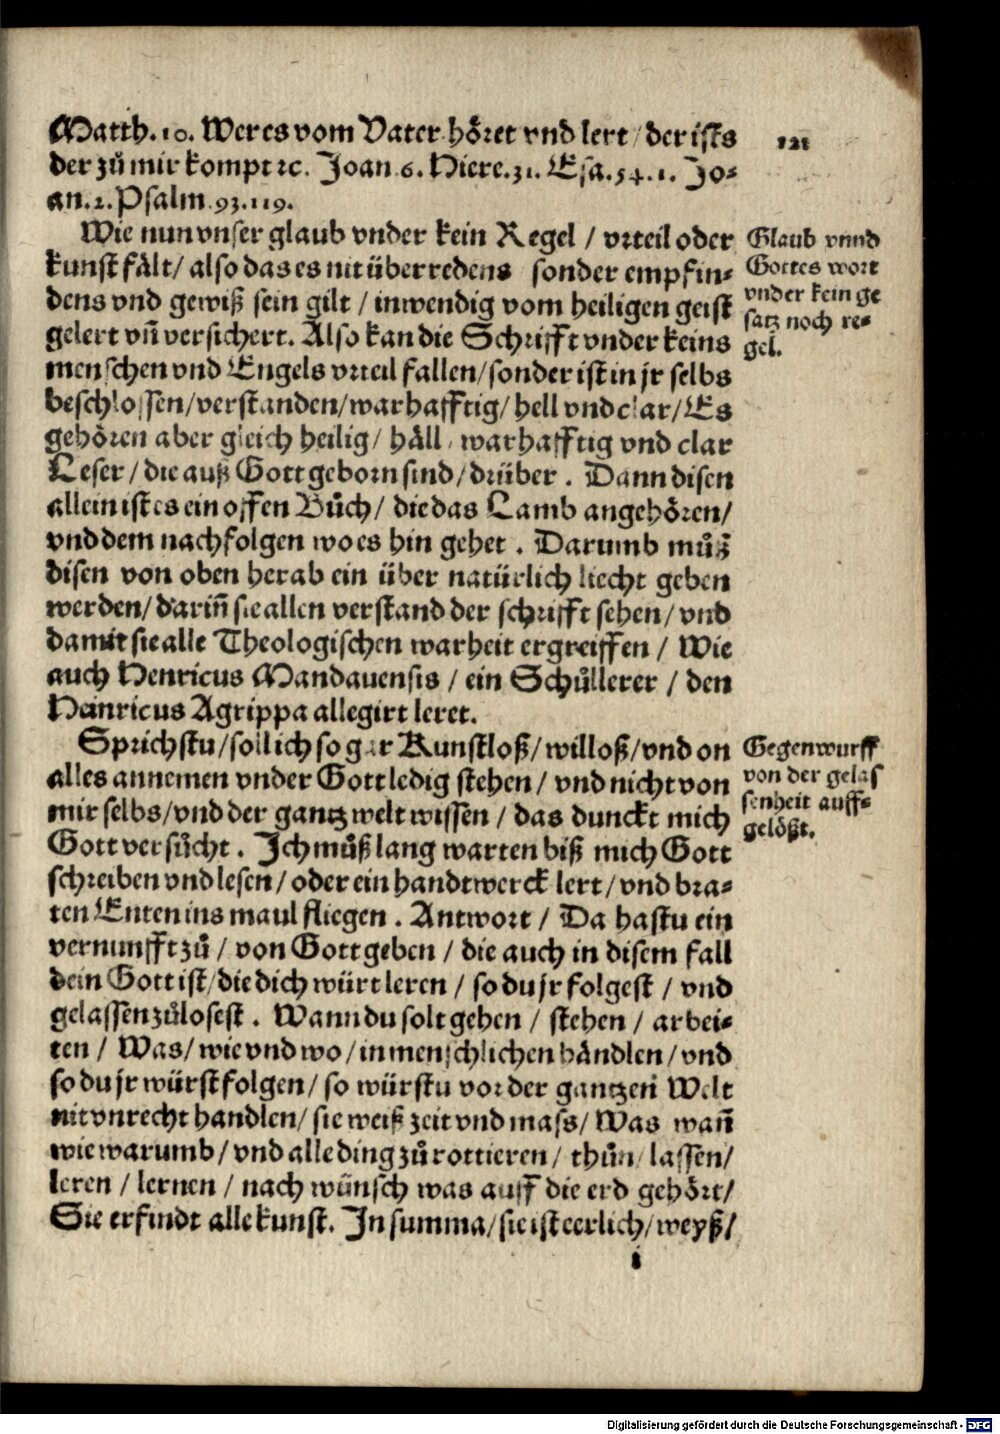 Matth. 10. Wer es vom Vater höret vnd lert / der ists
der zů mir kompt ꝛc. Joan 6. Hiere. 31. Esa. 54. 1. Jo⸗
an. 2. Psalm 93. 119.
121
Wie nun vnser glaub vnder kein Regel / vrteil oder
kunst fält / also das es nit überredens sonder empfin⸗
dens vnd gewiß sein gilt / inwendig vom heiligen geist
gelert vn̄ versichert. Also kan die Schrifft vnder keins
menschen vnd Engels vrteil fallen / sonder ist in jr selbs
beschlossen / verstanden / warhafftig / hell vnd clar / Es
gehören aber gleich heilig / häll / warhafftig vnd clar
Leser / die auß Gott geborn sind / drüber. Dann disen
allein ist es ein offen Bůch / die das Lamb angehören /
vnd dem nachfolgen wo es hin gehet. Darumb můß
disen von oben herab ein über natürlich liecht geben
werden / darin̄ sie allen verstand der schrifft sehen / vnd
damit sie alle Theologischen warheit ergreiffen / Wie
auch Henricus Mandauensis / ein Schůllerer / den
Heinricus Agrippa allegirt leret.
Glaub vnnd
Gottes wort
vnder kein ge
satz noch re⸗
gel.
Sprichstu / soll ich so gar Kunstloß / willoß / vnd on
alles annemen vnder Gott ledig stehen / vnd nicht von
mir selbs / vnd der gantz welt wissen / das dunckt mich
Gott versůcht. Ich můß lang warten biß mich Gott
schreiben vnd lesen / oder ein handtwerck lert / vnd bra⸗
ten Enten ins maul fliegen. Antwort / Da hastu ein
vernunfft zů / von Gott geben / die auch in disem fall
dein Gott ist / die dich würt leren / so du jr folgest / vnd
gelassen zůlosest. Wann du solt gehen / stehen / arbei⸗
ten / Was / wie vnd wo / in menschlichen händlen / vnd
so du jr würst folgen / so würstu vor der gantzen Welt
nit vnrecht handlen / sie weiß zeit vnd mass / Was wan̄
wie warumb / vnd alle ding zů rottieren / thůn / lassen /
leren / lernen / nach wünsch was auff die erd gehört /
Sie erfindt alle kunst. In summa / sie ist eerlich / weyß /
Gegenwurff
von der gelas
senheit auff⸗
gelößt.
Digitalisierung gefördert durch die Deutsche Forschungsgemeinschaft - DFG